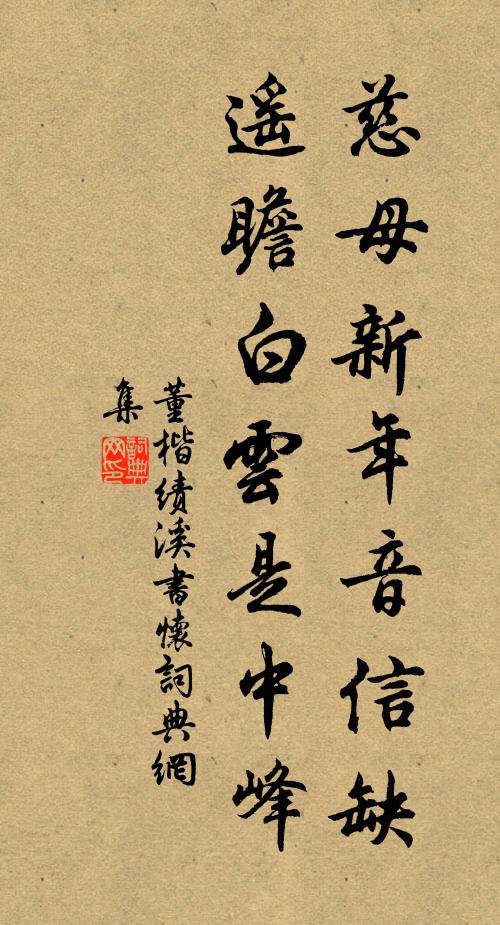 慈母新年音信缺
遥瞻白雲是中峰
董楷績溪書懷詞典網
集
詞典網印